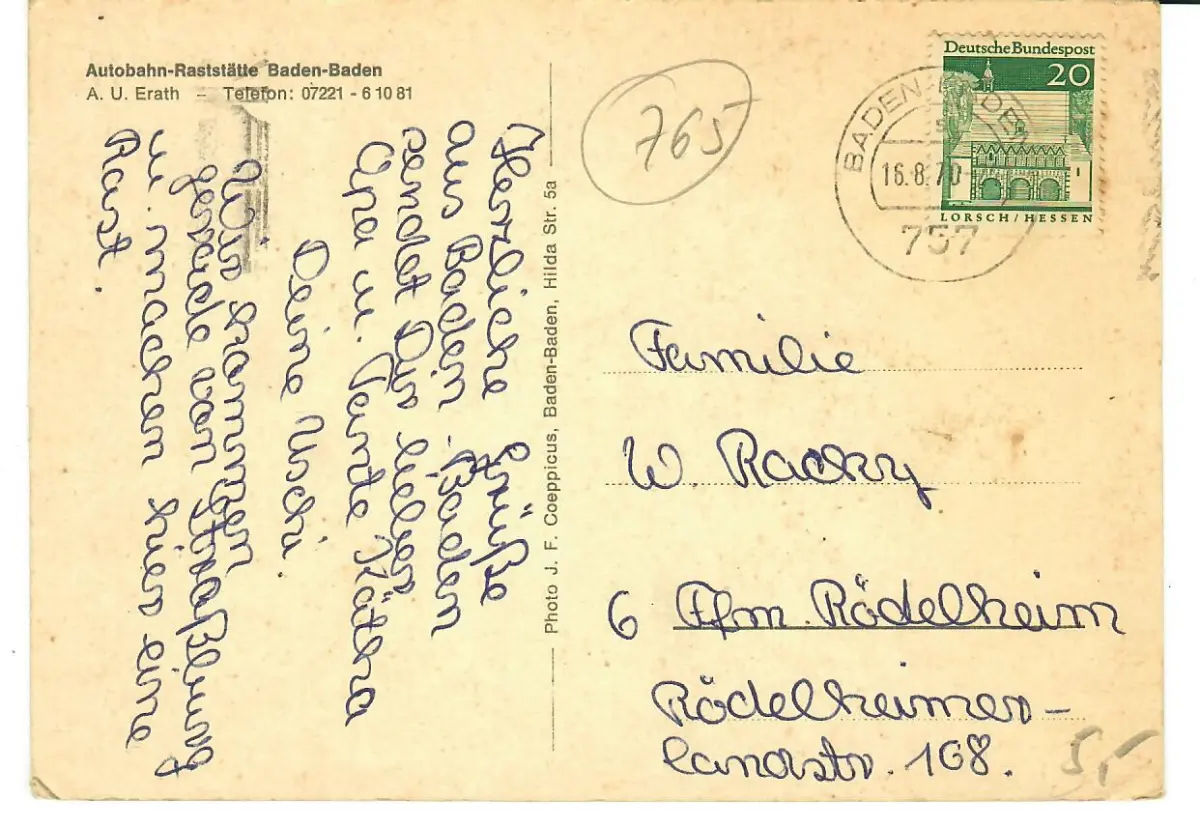 Autobahn-Raststätte Baden-Baden
A. U. Erath – Telefon: 07221 - 6 10 81
Herzliche Grüße
aus Baden-Baden
sendet Dir lieber
Opa u. Tante Käthe
Deine Uschi
Wir kommen
gerade von Straßburg
u. machen hier eine
Rast.
Photo J. F. Coeppicus, Baden-Baden, Hilda Str. 5a
765
Deutsche Bundespost
20
LORSCH/HESSEN
BADEN-BADEN
16.8.70
757
Familie
W. Racky
6 Ffm. Rödelheim
Rödelheimer-
landstr. 168.
5,-